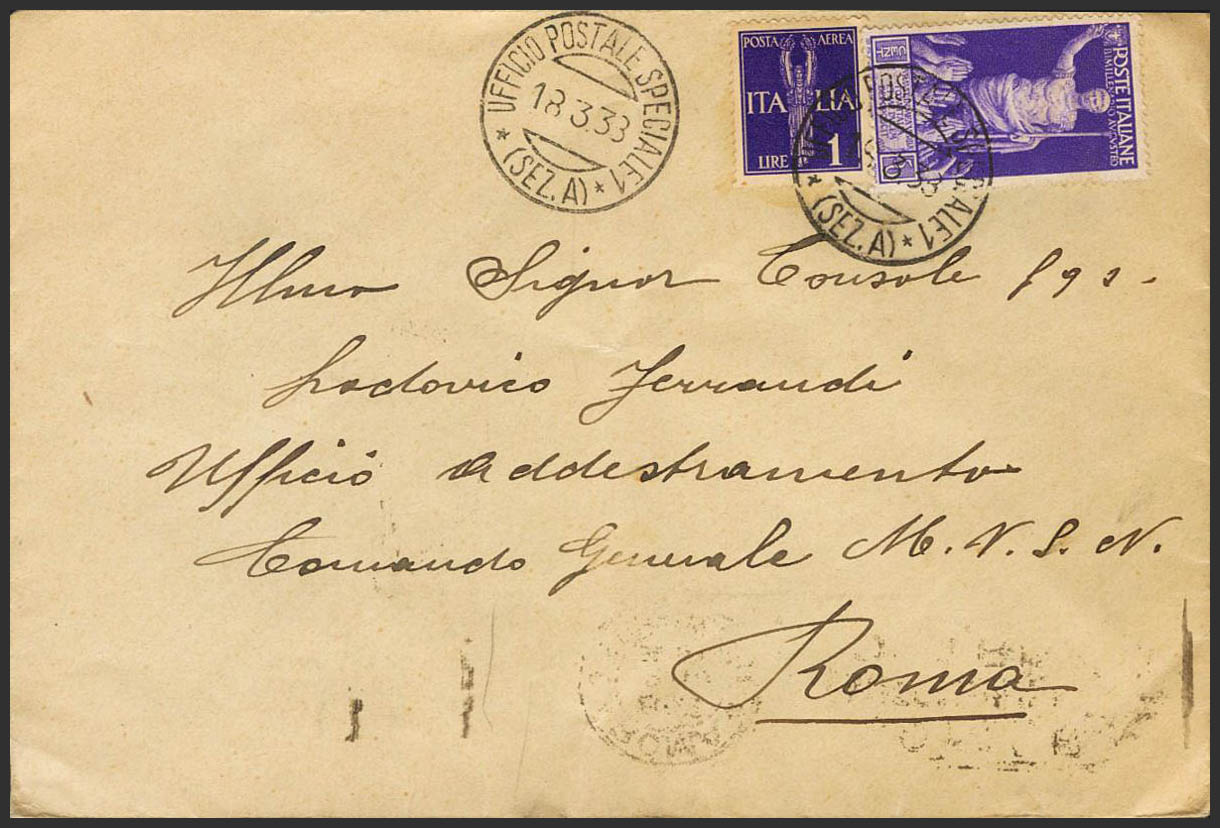 UFFICIO POSTALE SPECIALE 1
18.3.33
* (SEZ. A) *
POSTA AEREA
ITALIA
LIRE 1
POSTE ITALIANE
BIMILLENARIO AVGVSTEO
50
CENT
(SEZ. A) *
Illmo Signor Console
Lodovico Ferrandi
Ufficio Addestramento
Comando Generale M. V. S. N.
Roma